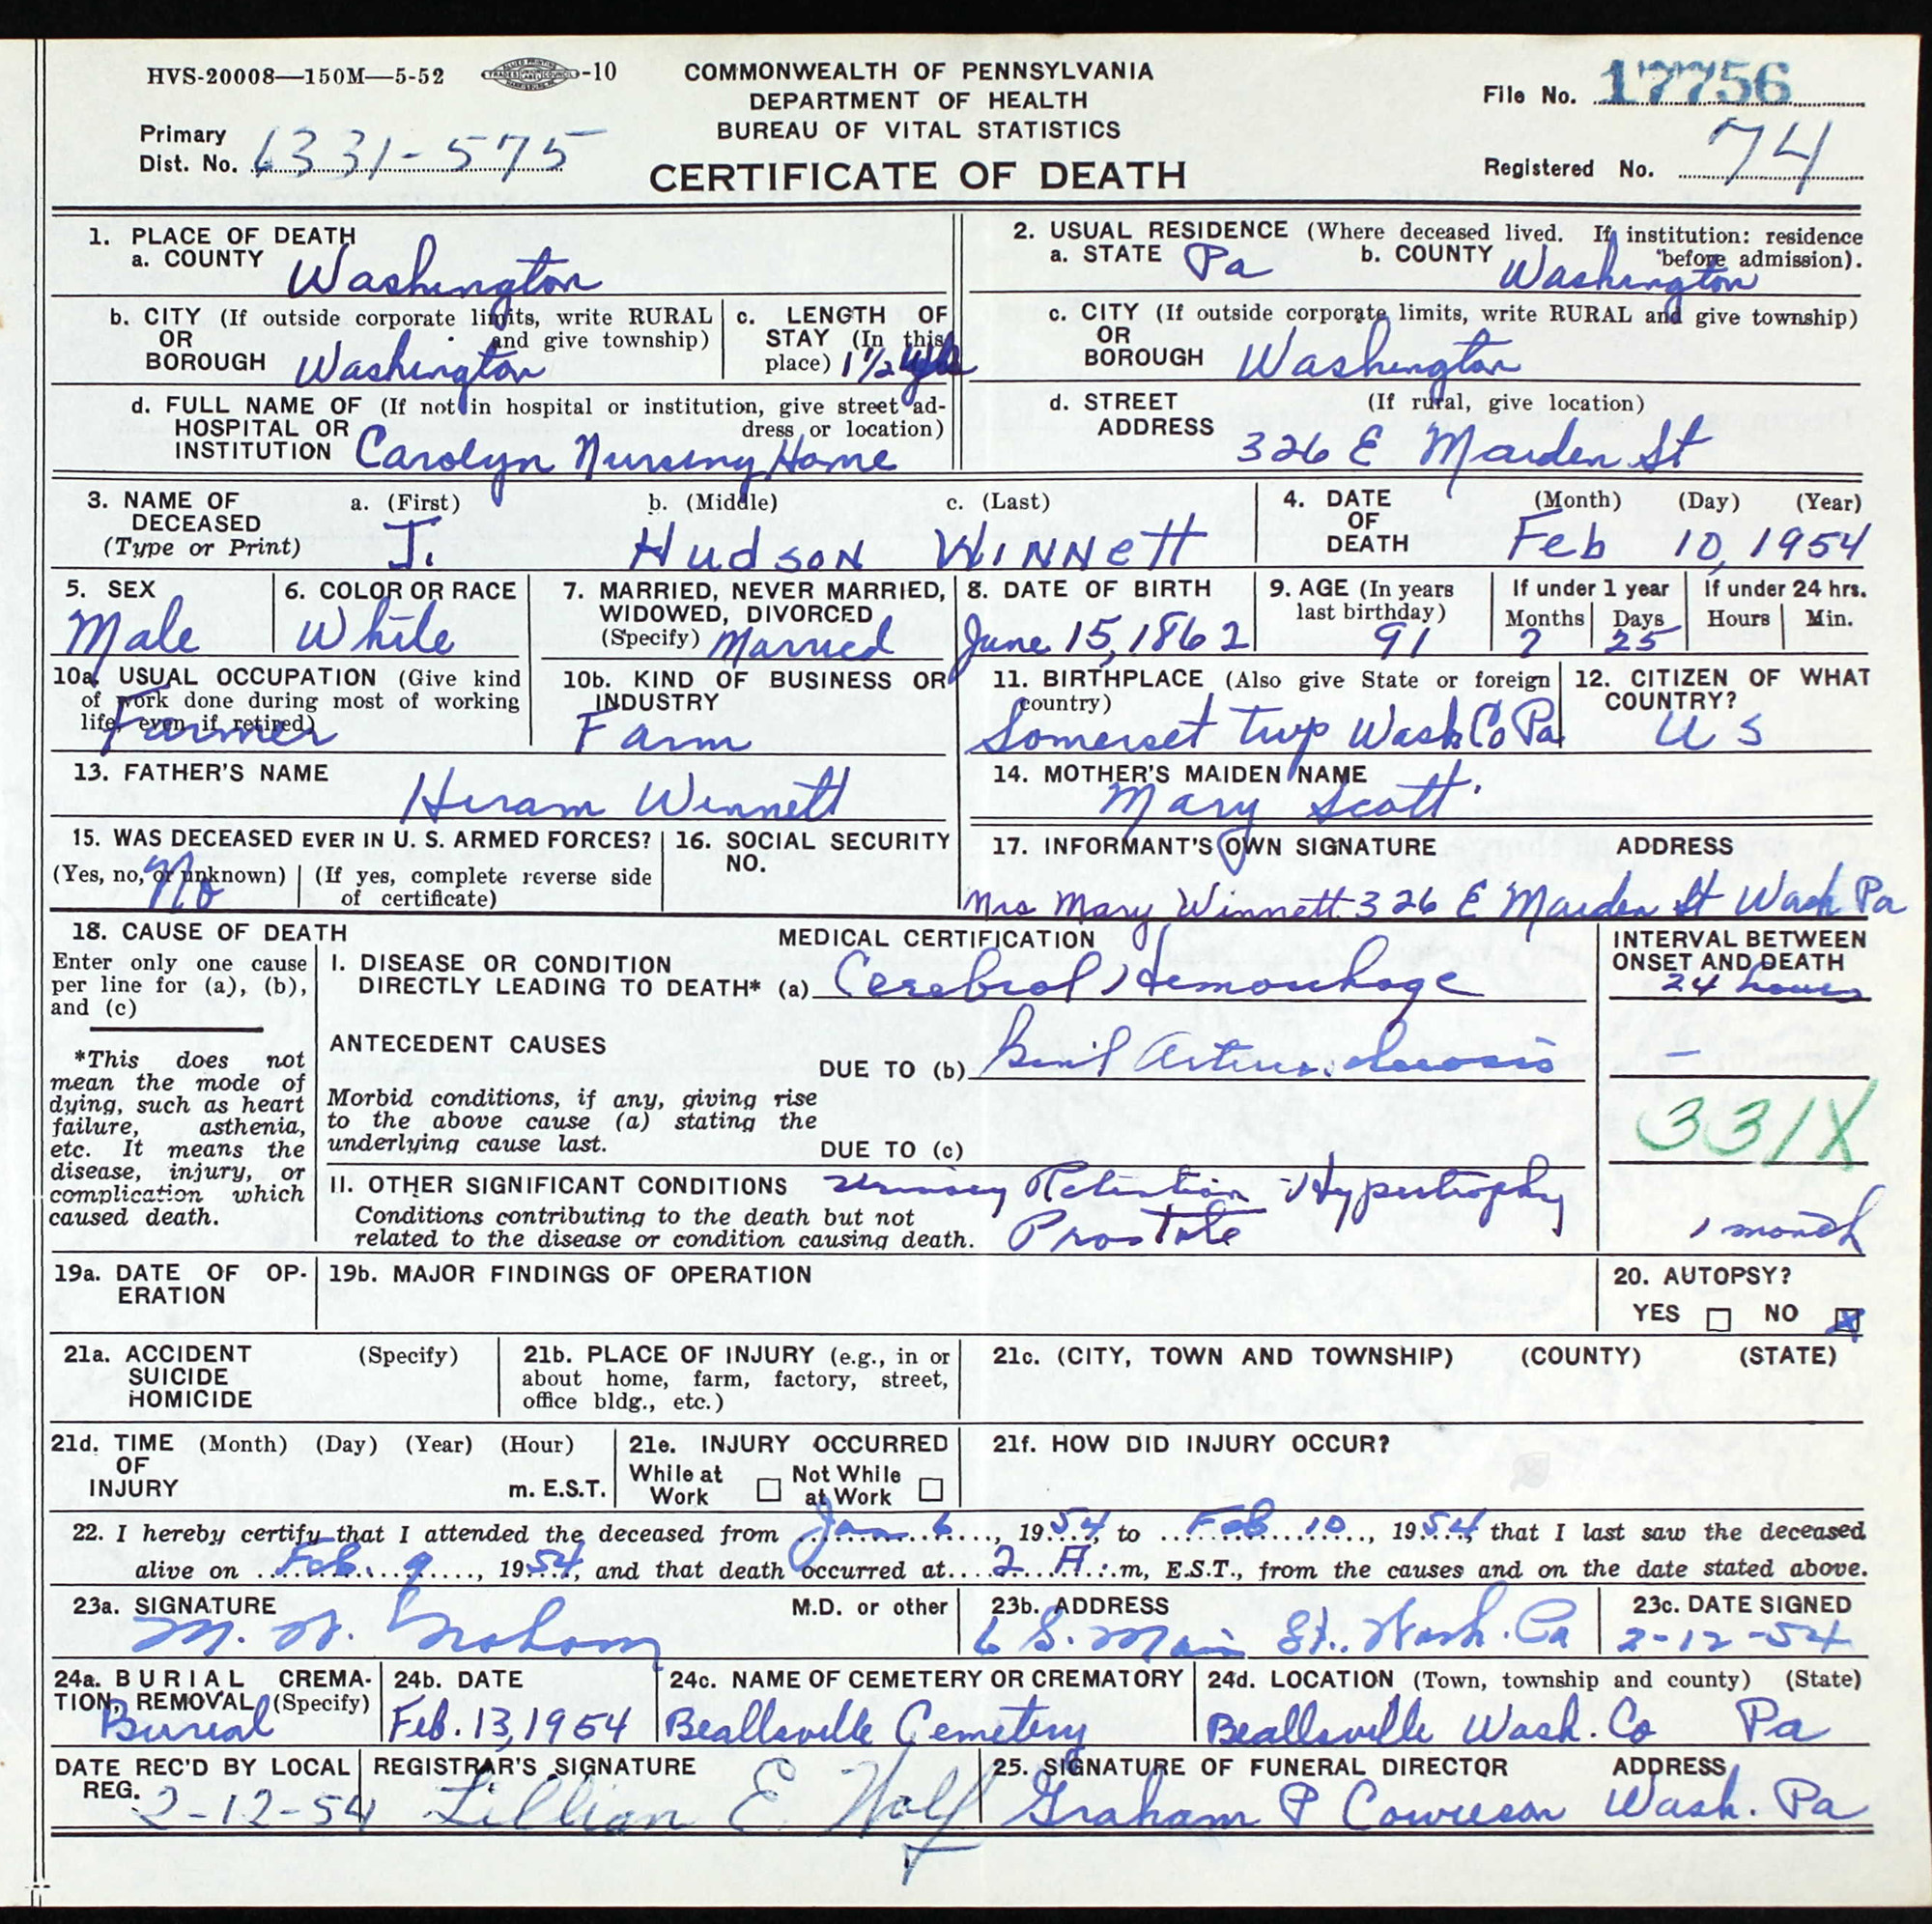 HVS-20008—150M—5-52 -10
COMMONWEALTH OF PENNSYLVANIA
DEPARTMENT OF HEALTH
BUREAU OF VITAL STATISTICS
CERTIFICATE OF DEATH
File No. 17756
Primary
Dist. No. 6331-575
Registered No. 74
1. PLACE OF DEATH
a. COUNTY Washington
2. USUAL RESIDENCE (Where deceased lived. If institution: residence
before admission).
a. STATE Pa b. COUNTY Washington
b. CITY (If outside corporate limits, write RURAL
OR and give township)
BOROUGH Washington
c. LENGTH OF
STAY (In this
place) 1 1/2
c. CITY (If outside corporate limits, write RURAL and give township)
OR
BOROUGH Washington
d. FULL NAME OF (If not in hospital or institution, give street ad-
HOSPITAL OR dress or location)
INSTITUTION Carolyn Nursing Home
d. STREET (If rural, give location)
ADDRESS 326 E Maiden St
3. NAME OF a. (First) b. (Middle) c. (Last)
DECEASED
(Type or Print) I. Hudson Winnett
4. DATE (Month) (Day) (Year)
OF
DEATH Feb 10, 1954
5. SEX
Male
6. COLOR OR RACE
White
7. MARRIED, NEVER MARRIED,
WIDOWED, DIVORCED
(Specify) Married
8. DATE OF BIRTH
June 15, 1862
9. AGE (In years
last birthday)
91
If under 1 year
Months Days
7 25
If under 24 hrs.
Hours Min.
10a. USUAL OCCUPATION (Give kind
of work done during most of working
life, even if retired)
Farmer
10b. KIND OF BUSINESS OR
INDUSTRY
Farm
11. BIRTHPLACE (Also give State or foreign
country)
Somerset twp Wash Co Pa
12. CITIZEN OF WHAT
COUNTRY?
U S
13. FATHER'S NAME
Hiram Winnett
14. MOTHER'S MAIDEN NAME
Mary Scott
15. WAS DECEASED EVER IN U. S. ARMED FORCES?
(Yes, no, or unknown) (If yes, complete reverse side
of certificate)
No
16. SOCIAL SECURITY
NO.
17. INFORMANT'S OWN SIGNATURE ADDRESS
Mrs Mary Winnett 326 E Maiden St Wash Pa
18. CAUSE OF DEATH
Enter only one cause
per line for (a), (b),
and (c)
*This does not
mean the mode of
dying, such as heart
failure, asthenia,
etc. It means the
disease, injury, or
complication which
caused death.
MEDICAL CERTIFICATION
I. DISEASE OR CONDITION
DIRECTLY LEADING TO DEATH* (a) Cerebral Hemorrhage
INTERVAL BETWEEN
ONSET AND DEATH
24 hours
ANTECEDENT CAUSES
DUE TO (b) Gen'l Arteriosclerosis
–
Morbid conditions, if any, giving rise
to the above cause (a) stating the
underlying cause last.
DUE TO (c)
331X
II. OTHER SIGNIFICANT CONDITIONS Urinary Retention - Hypertrophy
Conditions contributing to the death but not
related to the disease or condition causing death. Prostate
1 month
19a. DATE OF OP-
ERATION
19b. MAJOR FINDINGS OF OPERATION
20. AUTOPSY?
YES NO X
21a. ACCIDENT (Specify)
SUICIDE
HOMICIDE
21b. PLACE OF INJURY (e.g., in or
about home, farm, factory, street,
office bldg., etc.)
21c. (CITY, TOWN AND TOWNSHIP) (COUNTY) (STATE)
21d. TIME (Month) (Day) (Year) (Hour)
OF
INJURY m. E.S.T.
21e. INJURY OCCURRED
While at Not While
Work at Work
21f. HOW DID INJURY OCCUR?
22. I hereby certify that I attended the deceased from Jan. 6, 1954, to Feb 10, 1954, that I last saw the deceased
alive on Feb. 9, 1954, and that death occurred at 2 A.m, E.S.T., from the causes and on the date stated above.
23a. SIGNATURE M.D. or other
Graham
23b. ADDRESS
6 S. Main St., Wash. Pa
23c. DATE SIGNED
2-12-54
24a. BURIAL CREMA-
TION, REMOVAL (Specify)
Burial
24b. DATE
Feb. 13, 1954
24c. NAME OF CEMETERY OR CREMATORY
Beallsville Cemetery
24d. LOCATION (Town, township and county) (State)
Beallsville Wash. Co Pa
DATE REC'D BY LOCAL
REG. 2-12-54
REGISTRAR'S SIGNATURE
Lillian E. Wolf
25. SIGNATURE OF FUNERAL DIRECTOR ADDRESS
Graham P Cowieson Wash. Pa